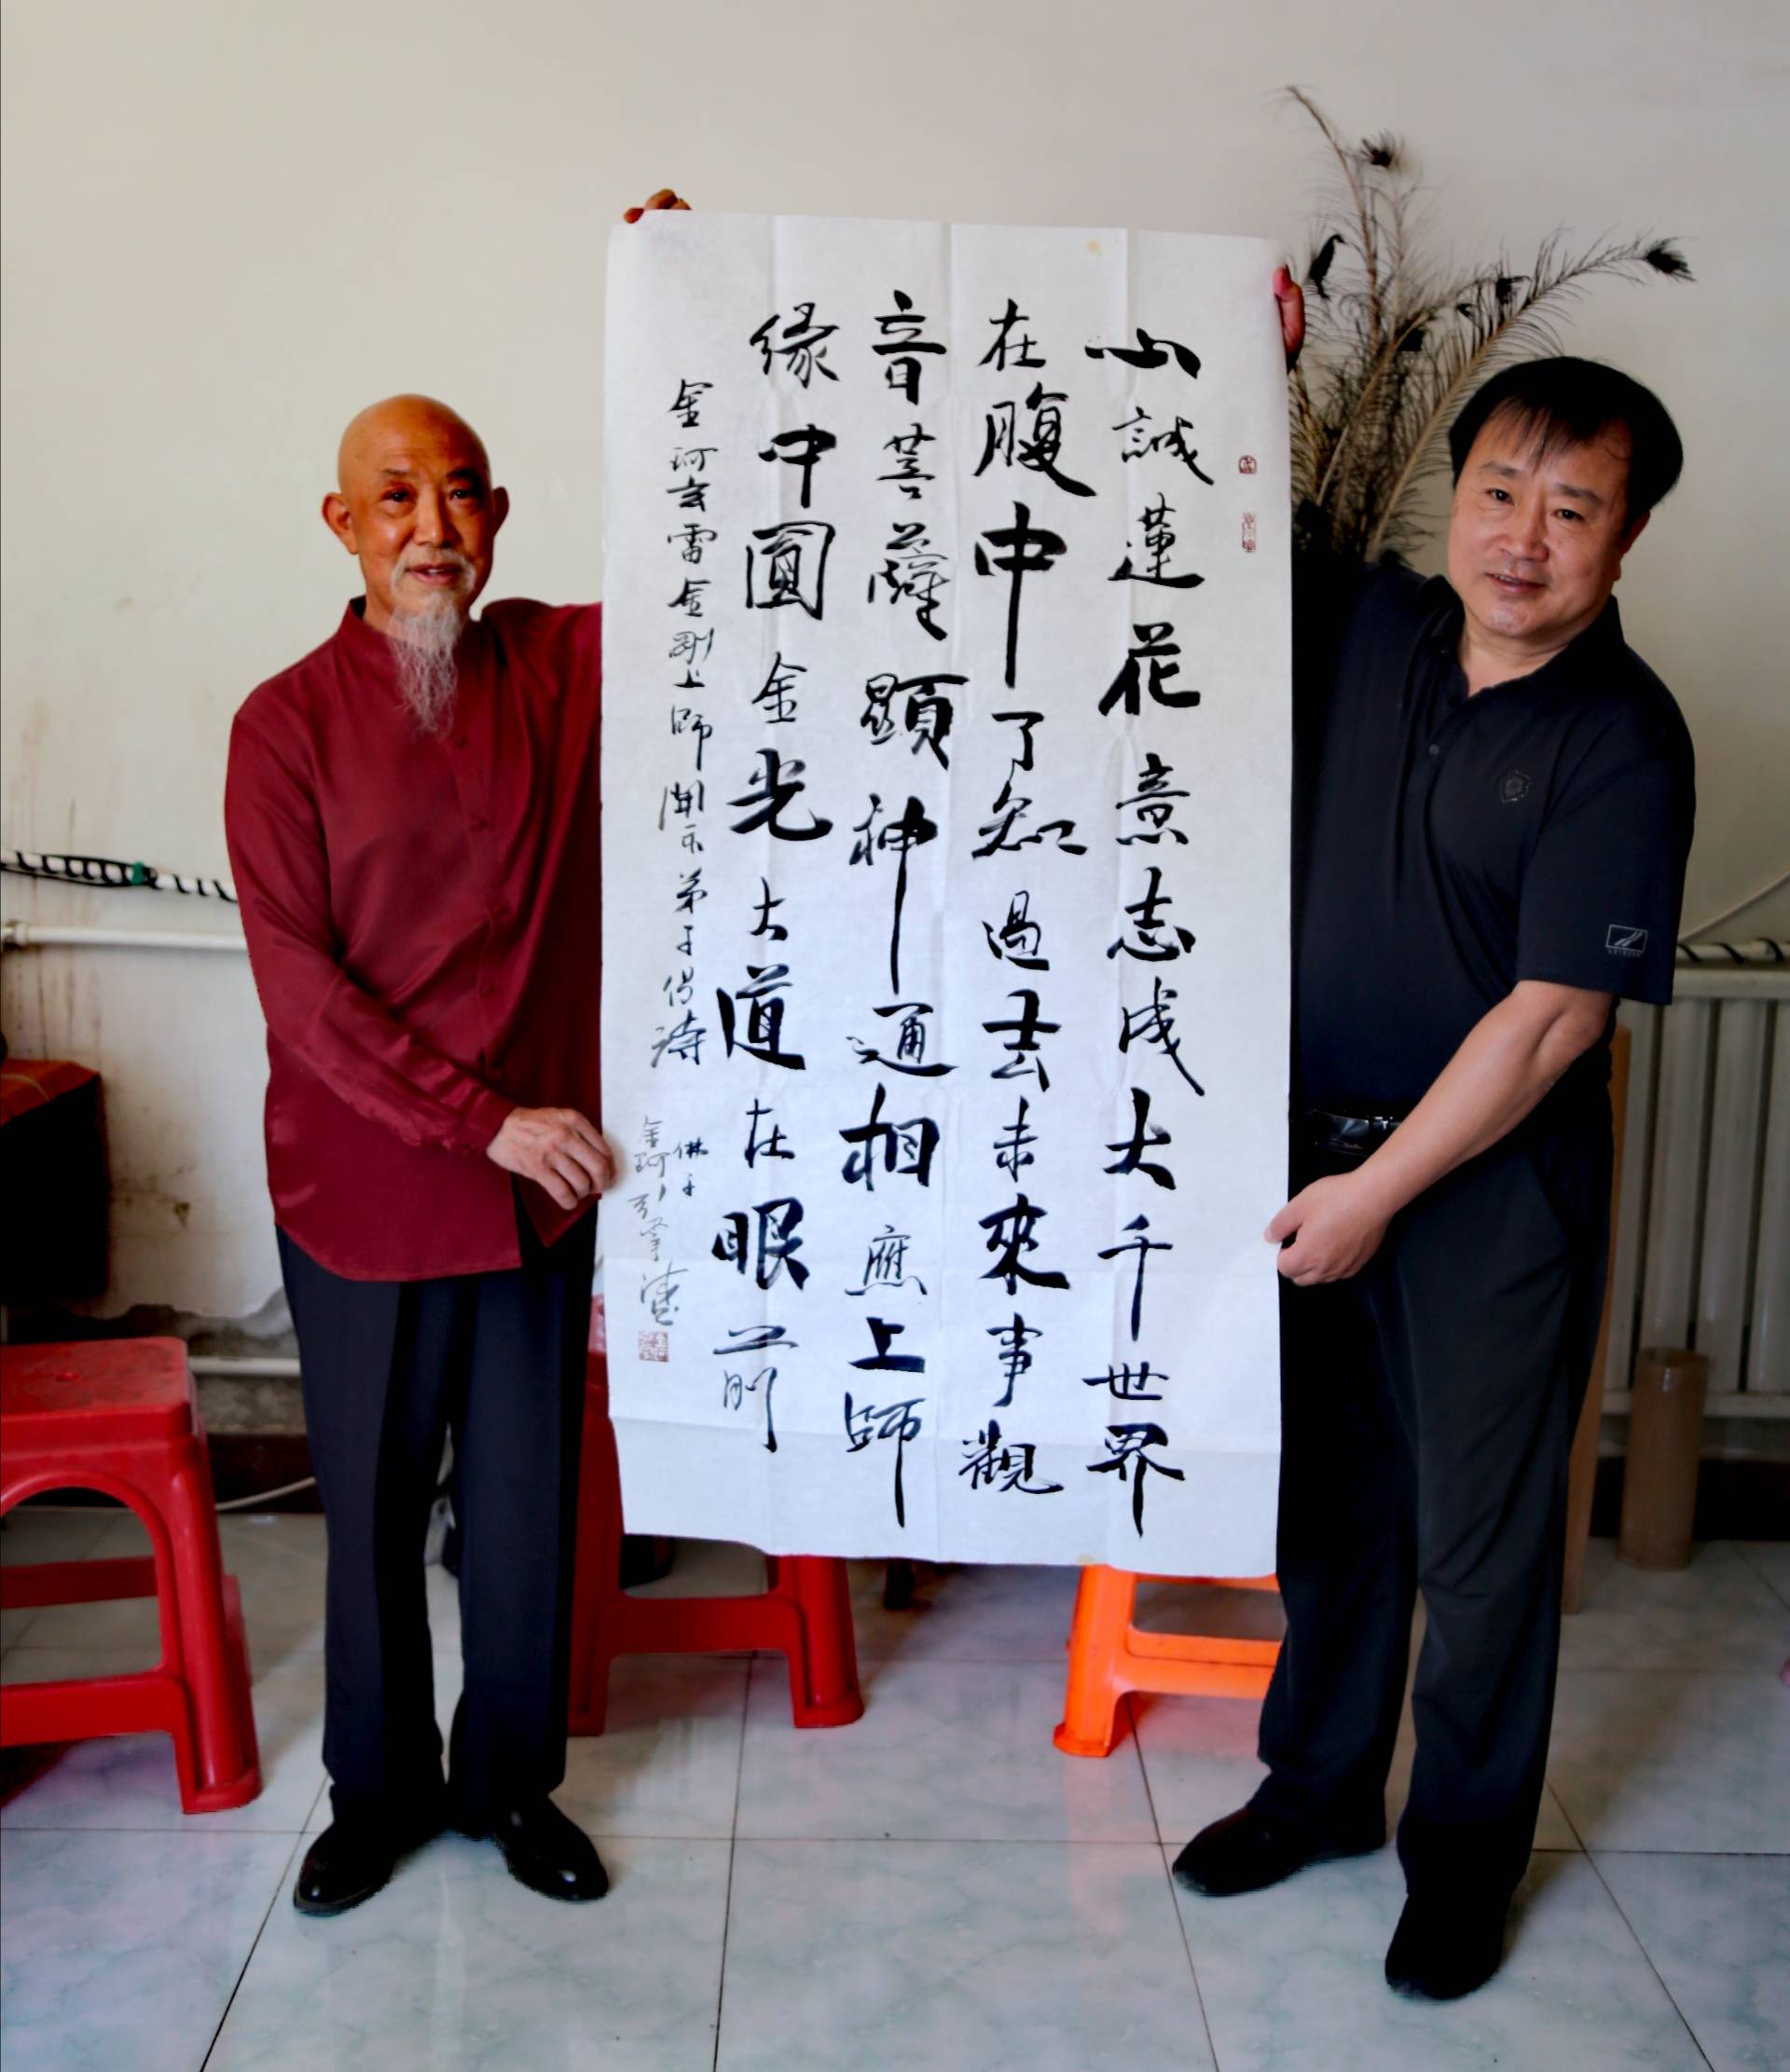 心誠蓮花意志成大千世界
在腹中了知過去未來事觀
音菩薩顯神通相應上師
緣中圓金光大道在眼前
金珂玄雷金剛上師開示弟子偈
佛子
金珂